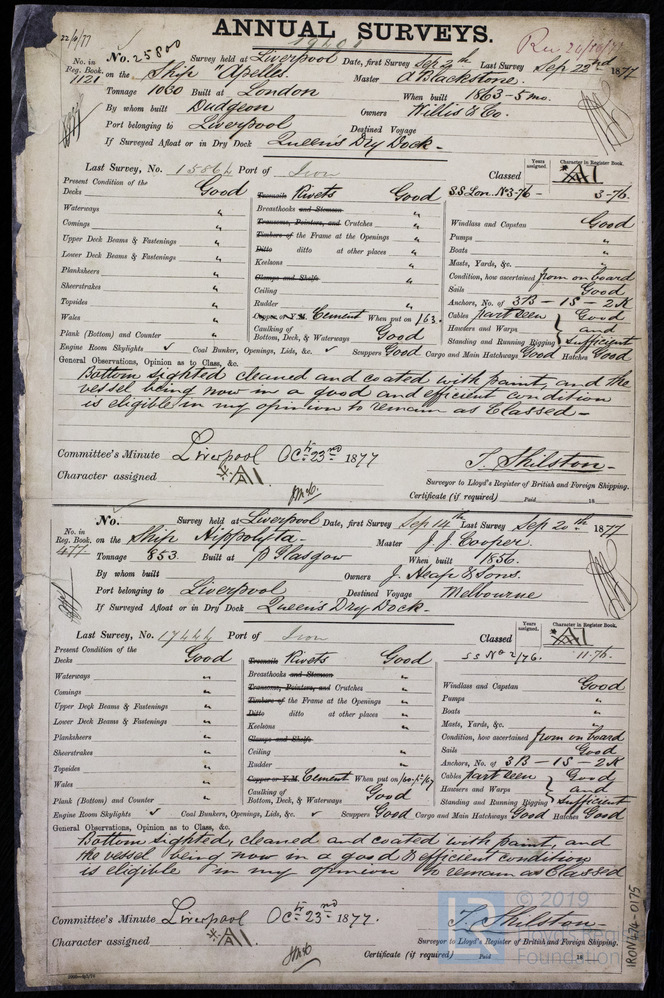 ANNUAL SURVEYS.
22/9/77
19401
No. 25800 Survey held at Liverpool Date, first Survey Sep 20th Last Survey Sep 22nd 1877
No. in Reg. Book. 1121 on the Ship "Apelles. Master A Blackstone.
Tonnage 1060 Built at London When built 1863-5 mo.
By whom built Dudgeon Owners Willis & Co.
Port belonging to Liverpool Destined Voyage
If Surveyed Afloat or in Dry Dock Queen's Dry Dock -
Last Survey, No. 15864 Port of Iron Classed Years assigned. Character in Register Book.
A1
Present Condition of the
Decks Good Treenails Rivets Good S.S. Lon. No3-76 - 3-76.
Waterways " Breasthooks and Stemson "
Comings " Transoms, Pointers, and Crutches " Windlass and Capstan Good
Upper Deck Beams & Fastenings " Timbers of the Frame at the Openings " Pumps "
Lower Deck Beams & Fastenings " Ditto ditto at other places " Boats "
Planksheers " Keelsons " Masts, Yards, &c. "
Sheerstrakes " Clamps and Shelfs Condition, how ascertained from on board
Topsides " Ceiling " Sails Good
Wales " Rudder " Anchors, No. of 3B - 1S - 2K
Plank (Bottom) and Counter " Copper or Y.M. Cement When put on /63. Cables part seen Good
Caulking of Bottom, Deck, & Waterways Good Hawsers and Warps and
Standing and Running Rigging Sufficient
Engine Room Skylights ✓ Coal Bunker, Openings, Lids, &c. ✓ Scuppers Good Cargo and Main Hatchways Good Hatches Good
General Observations, Opinion as to Class, &c.
Bottom sighted cleaned and coated with paint, and the
vessel being now in a good and efficient condition
is eligible in my opinion to remain as Classed -
Committee's Minute Liverpool Oct 23rd 1877
Character assigned A1
T. Shilston -
Surveyor to Lloyd's Register of British and Foreign Shipping.
Certificate (if required) Paid 18
No. Survey held at Liverpool Date, first Survey Sep 14th Last Survey Sep 20th 1877
No. in Reg. Book. 477 on the Ship Hippolyta - Master J. J. Cooper.
Tonnage 853. Built at P Glasgow When built 1856.
By whom built Owners J. Heap & Sons.
Port belonging to Liverpool Destined Voyage Melbourne
If Surveyed Afloat or in Dry Dock Queen's Dry Dock -
Last Survey, No. 17444 Port of Iron Classed Years assigned. Character in Register Book.
A1
Present Condition of the
Decks Good Treenails Rivets Good SS No 2/76. 11-76.
Waterways " Breasthooks and Stemson "
Comings " Transoms, Pointers, and Crutches " Windlass and Capstan Good
Upper Deck Beams & Fastenings " Timbers of the Frame at the Openings " Pumps "
Lower Deck Beams & Fastenings " Ditto ditto at other places " Boats "
Planksheers " Keelsons " Masts, Yards, &c. "
Sheerstrakes " Clamps and Shelfs Condition, how ascertained from on board
Topsides " Ceiling " Sails Good
Wales " Rudder " Anchors, No. of 3B - 1S - 2K
Plank (Bottom) and Counter " Copper or Y.M. Cement When put on Cables part seen Good
Caulking of Bottom, Deck, & Waterways Good Hawsers and Warps and
Standing and Running Rigging Sufficient
Engine Room Skylights ✓ Coal Bunkers, Openings, Lids, &c. ✓ Scuppers Good Cargo and Main Hatchways Good Hatches Good
General Observations, Opinion as to Class, &c.
Bottom sighted, cleaned and coated with paint, and
the vessel being now in a good & efficient condition
is eligible in my opinion to remain as Classed
Committee's Minute Liverpool Oct 23rd 1877.
Character assigned A1.
T. Shilston -
Surveyor to Lloyd's Register of British and Foreign Shipping.
Certificate (if required) Paid 18
© 2019
Lloyd's Register
Foundation
IRON474-0175